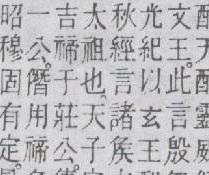 配天配靈威
文王此言殷
光紀以玄王
秋經言諸矦
太祖也天子
吉禘于莊公
一公僭用禘
昭穆固有定